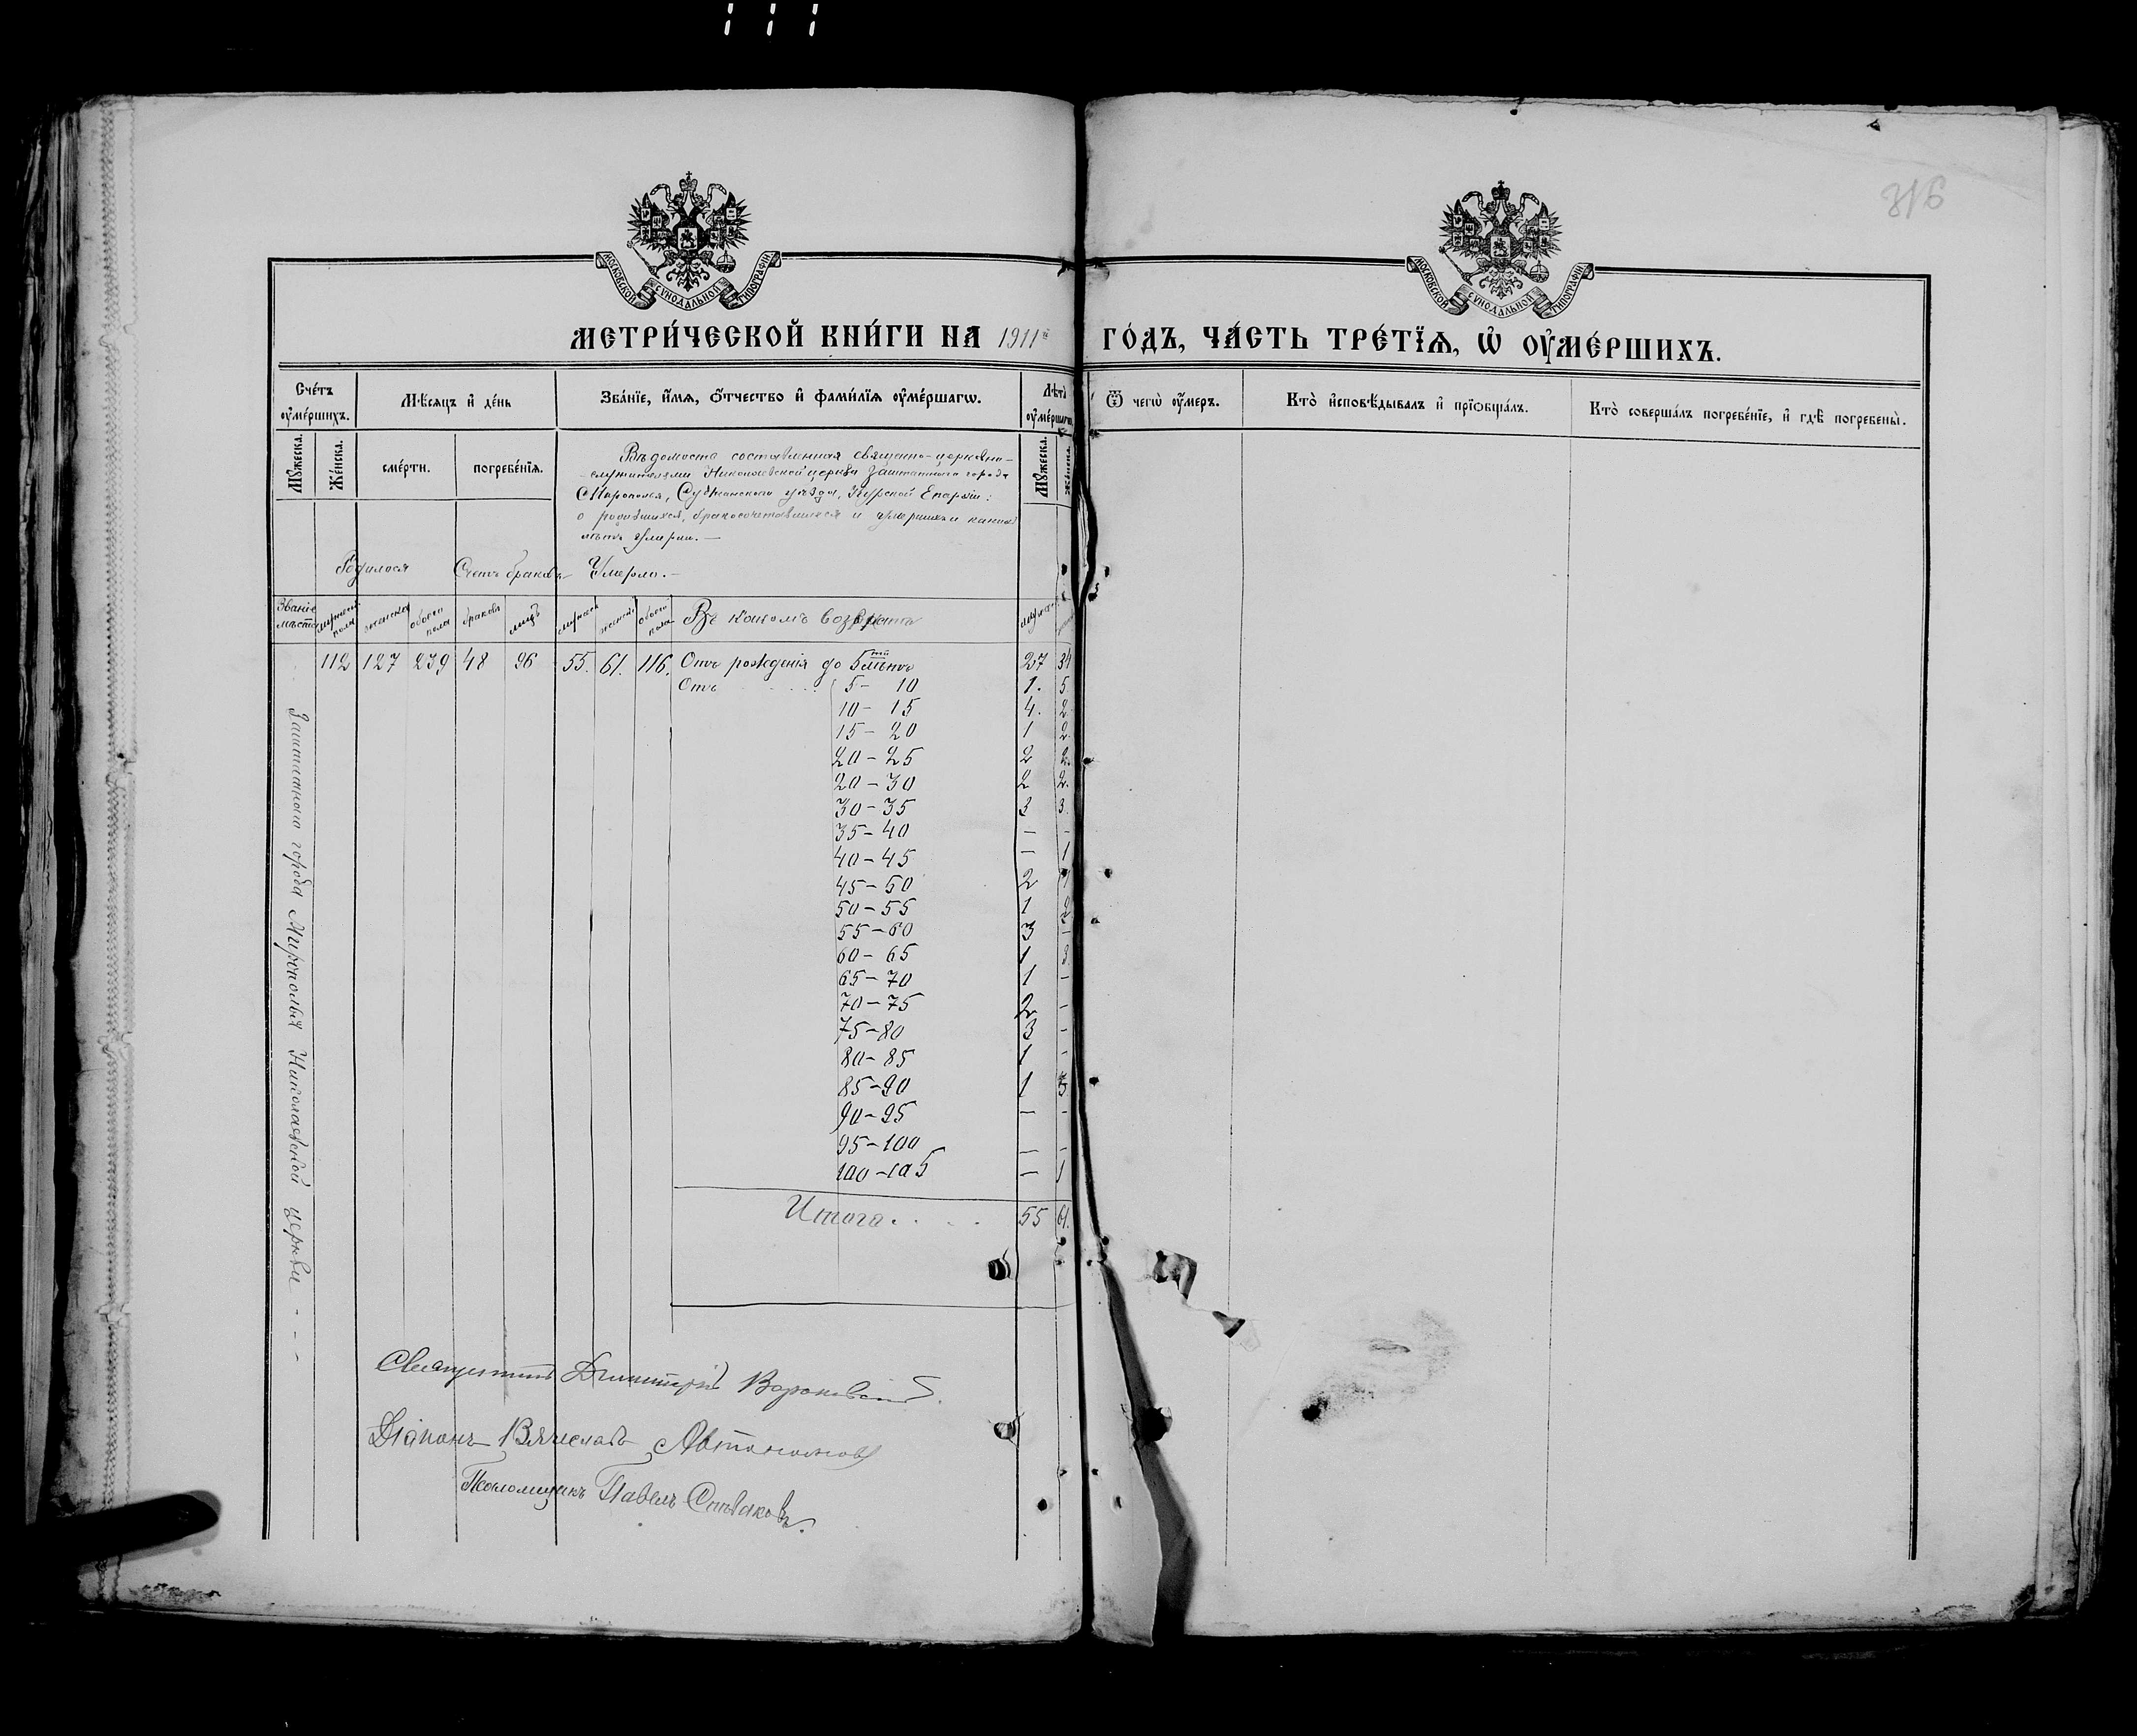 316
МОСКОВСКОЙ СѴНОДАЛЬНОЙ ТИПОГРАФІИ
МОСКОВСКОЙ СѴНОДАЛЬНОЙ ТИПОГРАФІИ
МЕТРИ́ЧЕСКОЙ КНИ́ГИ НА 1911й ГО́ДЪ, ЧА́СТЬ ТРЕ́ТЇѦ, Ѡ҆ ОУ҆МЕ́РШИХЪ.
Сче́тъ оу҆ме́ршихъ.
Мѣ́сяцъ и҆ де́нь
Зва́нїе, и҆́мѧ, ѻ҆́тчество и҆ фами́лїѧ оу҆ме́ршагѡ.
Лѣ́та оу҆ме́ршагѡ.
Ѿ чегѡ̀ оу҆́меръ.
Кто̀ и҆сповѣ́дывалъ и҆ прїѡбща́лъ.
Кто̀ соверша́лъ погребе́нїе, и҆ гдѣ̀ погребены̀.
Мꙋ́жеска.
Же́нска.
сме́рти.
погребе́нїѧ.
Мꙋ́жеска.
Же́нска.
Вѣдомость составленная священно-церковно-
-служителями Николаевской церкви Заштатного города
Мирополья, Суджанского уѣзда, Курской Епархіи:
о родившихся, бракосочетавшихся и умершихъ и какихъ
лѣтъ умерли. —
Родилося Счетъ браковъ Умерло. —
Званіе мѣста
мужеска пола
женска
обоего пола
браковъ
лицъ
мужеск
женска
обоего пола
Въ какомъ возрастѣ
мужеск
112 127 239 48 96 55. 61. 116. Отъ рожденія до 5ти лѣтъ 27 34
Отъ . . . . . 5 - 10 1. 5.
10 - 15 4. 2.
15 - 20 1 2.
20 - 25 2 2.
20 - 30 2 2.
30 - 35 3 3.
35 - 40 — -
40 - 45 — 1
45 - 50 2
50 - 55 1 2
55 - 60 3 -
60 - 65 1 3.
65 - 70 1 -
70 - 75 2 -
75 - 80 3 -
80 - 85 1 -
85 - 90 1 3
90 - 95 — -
95 - 100 — -
100 - 105 — 1
Итого . . . . 55 61.
Заштатного города Мирополья Николаевской церкви - - -
Священникъ Димитрій
Діаконъ Вячеславъ Автономовъ
Псаломщикъ Павелъ Спѣваковъ.